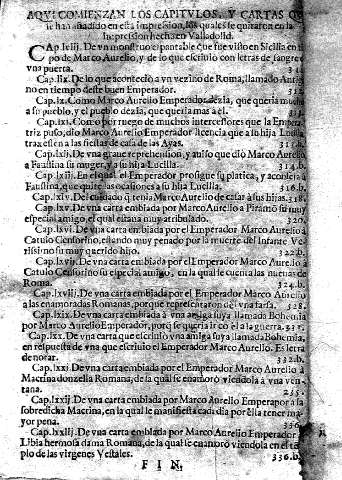 AQVI COMIENZAN LOS CAPITVLOS, Y CARTAS QV
se han añadido en esta impression, los quales se quitaron en la
Impression hecha en Valladolid.
CAp. lviij. De vn monstruo espantable que fue visto en Sicilia en
po de Marco Aurelio, y de lo que escriuio con letras de sangre
vna puerta.
Cap. lix. De lo que aconteciò a vn vezino de Roma, llamado Antio
no en tiempo deste buen Emperador.
Cap. lx. Como Marco Aurelio Emperador dezia, que queria mucho
a su pueblo, y el pueblo dezia, que queria mas a el.
Cap. lxj. Como por ruego de muchos intercessores que la Empe
triz puso, dio Marco Aurelio Emperador licencia que a su hija Lucilla
traxessen a las fiestas de casa de las Ayas.
Cap. lxij. De vna graue reprehension, y auiso que dio Marco Aurelio
a Faustina su muger, y a su hija Lucilla.
Cap. lxiij. En el qual el Emperador prosigue su platica, y aconseja a
Faustina, que quite las ocasiones a su hija Lucilla. 316.b.
Cap. lxiv. Del cuidado q̃ tenia Marco Aurelio de casar à sus hijas. 318.
Cap. lxv. De vna carta embiada por Marco Aurelio a Piramo su muy
especial amigo, el qual estaua muy atribulado. 320.
Cap. lxvi. De vna carta embiada por el Emperador Marco Aurelio à
Catulo Censorino, estando muy penado por la muerte del Infante Ve
rissimo su muy querido hijo. 322.b.
Cap. lxvij. De vna carta embiada por el Emperador Marco Aurelio à
Catulo Censorino su especial amigo, en la qual le cuenta las nueuas de
Roma. 324.b.
Cap. lxviij. De vna carta embiada por el Emperador Marco Aurelio
a las enamoradas Romanas, porque representaron del vna farsa. 328.
Cap. lxix. De vna carta embiada à vna amiga suya llamada Bohemia
por Marco Aurelio Emperador, porq̃ se queria ir cõ èl a la guerra. 331.
Cap. lxx. De vna carta que escriuiò vna amiga suya llamada Bohemia,
en respuesta de vna que escriuio el Emperador Marco Aurelio. Es letra
de notar. 332.b.
Cap. lxxj. De vna carta embiada por el Emperador Marco Aurelio à
Macrina donzella Romana, de la qual se enamorò viendola à vna ven
tana. 335.
Cap. lxxij. De vna carta embiada por Marco Aurelio Emperapor a la
sobredicha Macrina, en la qual le manifiesta cada dia por ella tener ma
yor pena. 336.
Cap. lxxiij. De vna carta embiada por Marco Aurelio Emperador
Libia hermosa dama Romana, de la qual se enamorò viendola en el tẽ
plo de las virgenes Vestales. 336.b.
F I N.